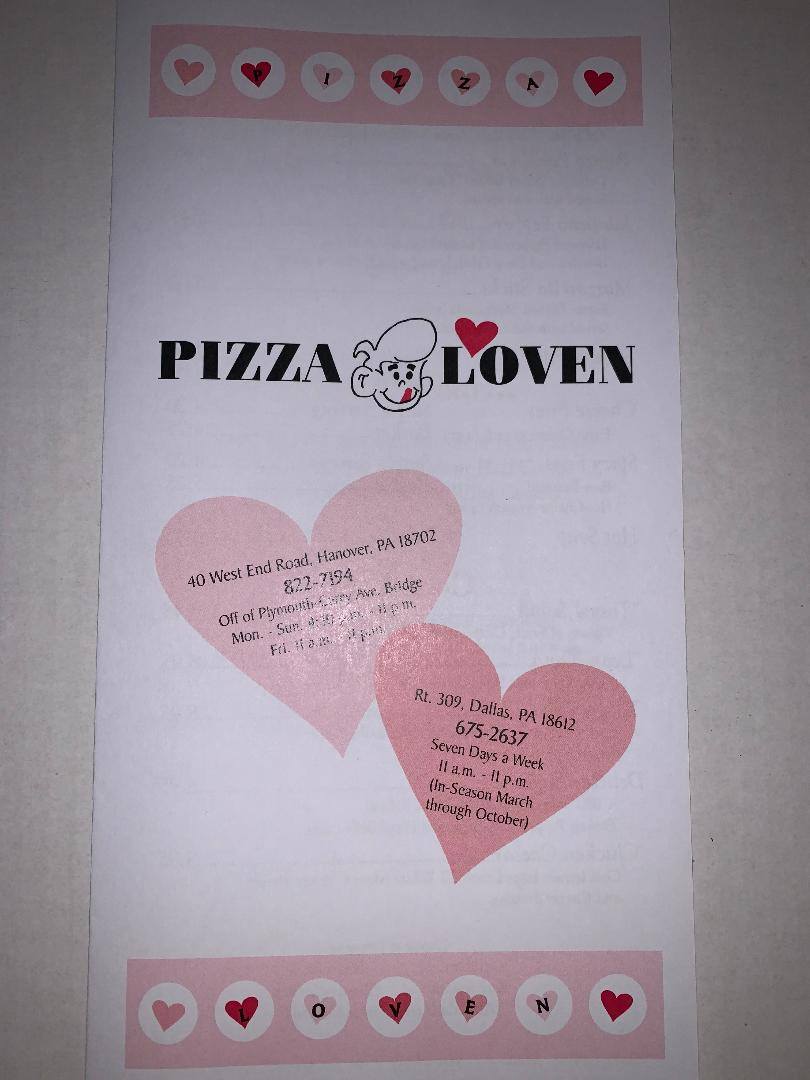 PIZZA
PIZZA LOVEN
40 West End Road, Hanover, PA 18702
822-7194
Off of Plymouth-Carey Ave. Bridge
Mon. - Sun. 4:30 p.m. - 11 p.m.
Fri. 11 a.m. - 11 p.m.
Rt. 309, Dallas, PA 18612
675-2637
Seven Days a Week
11 a.m. - 11 p.m.
(In-Season March
through October)
LOVEN